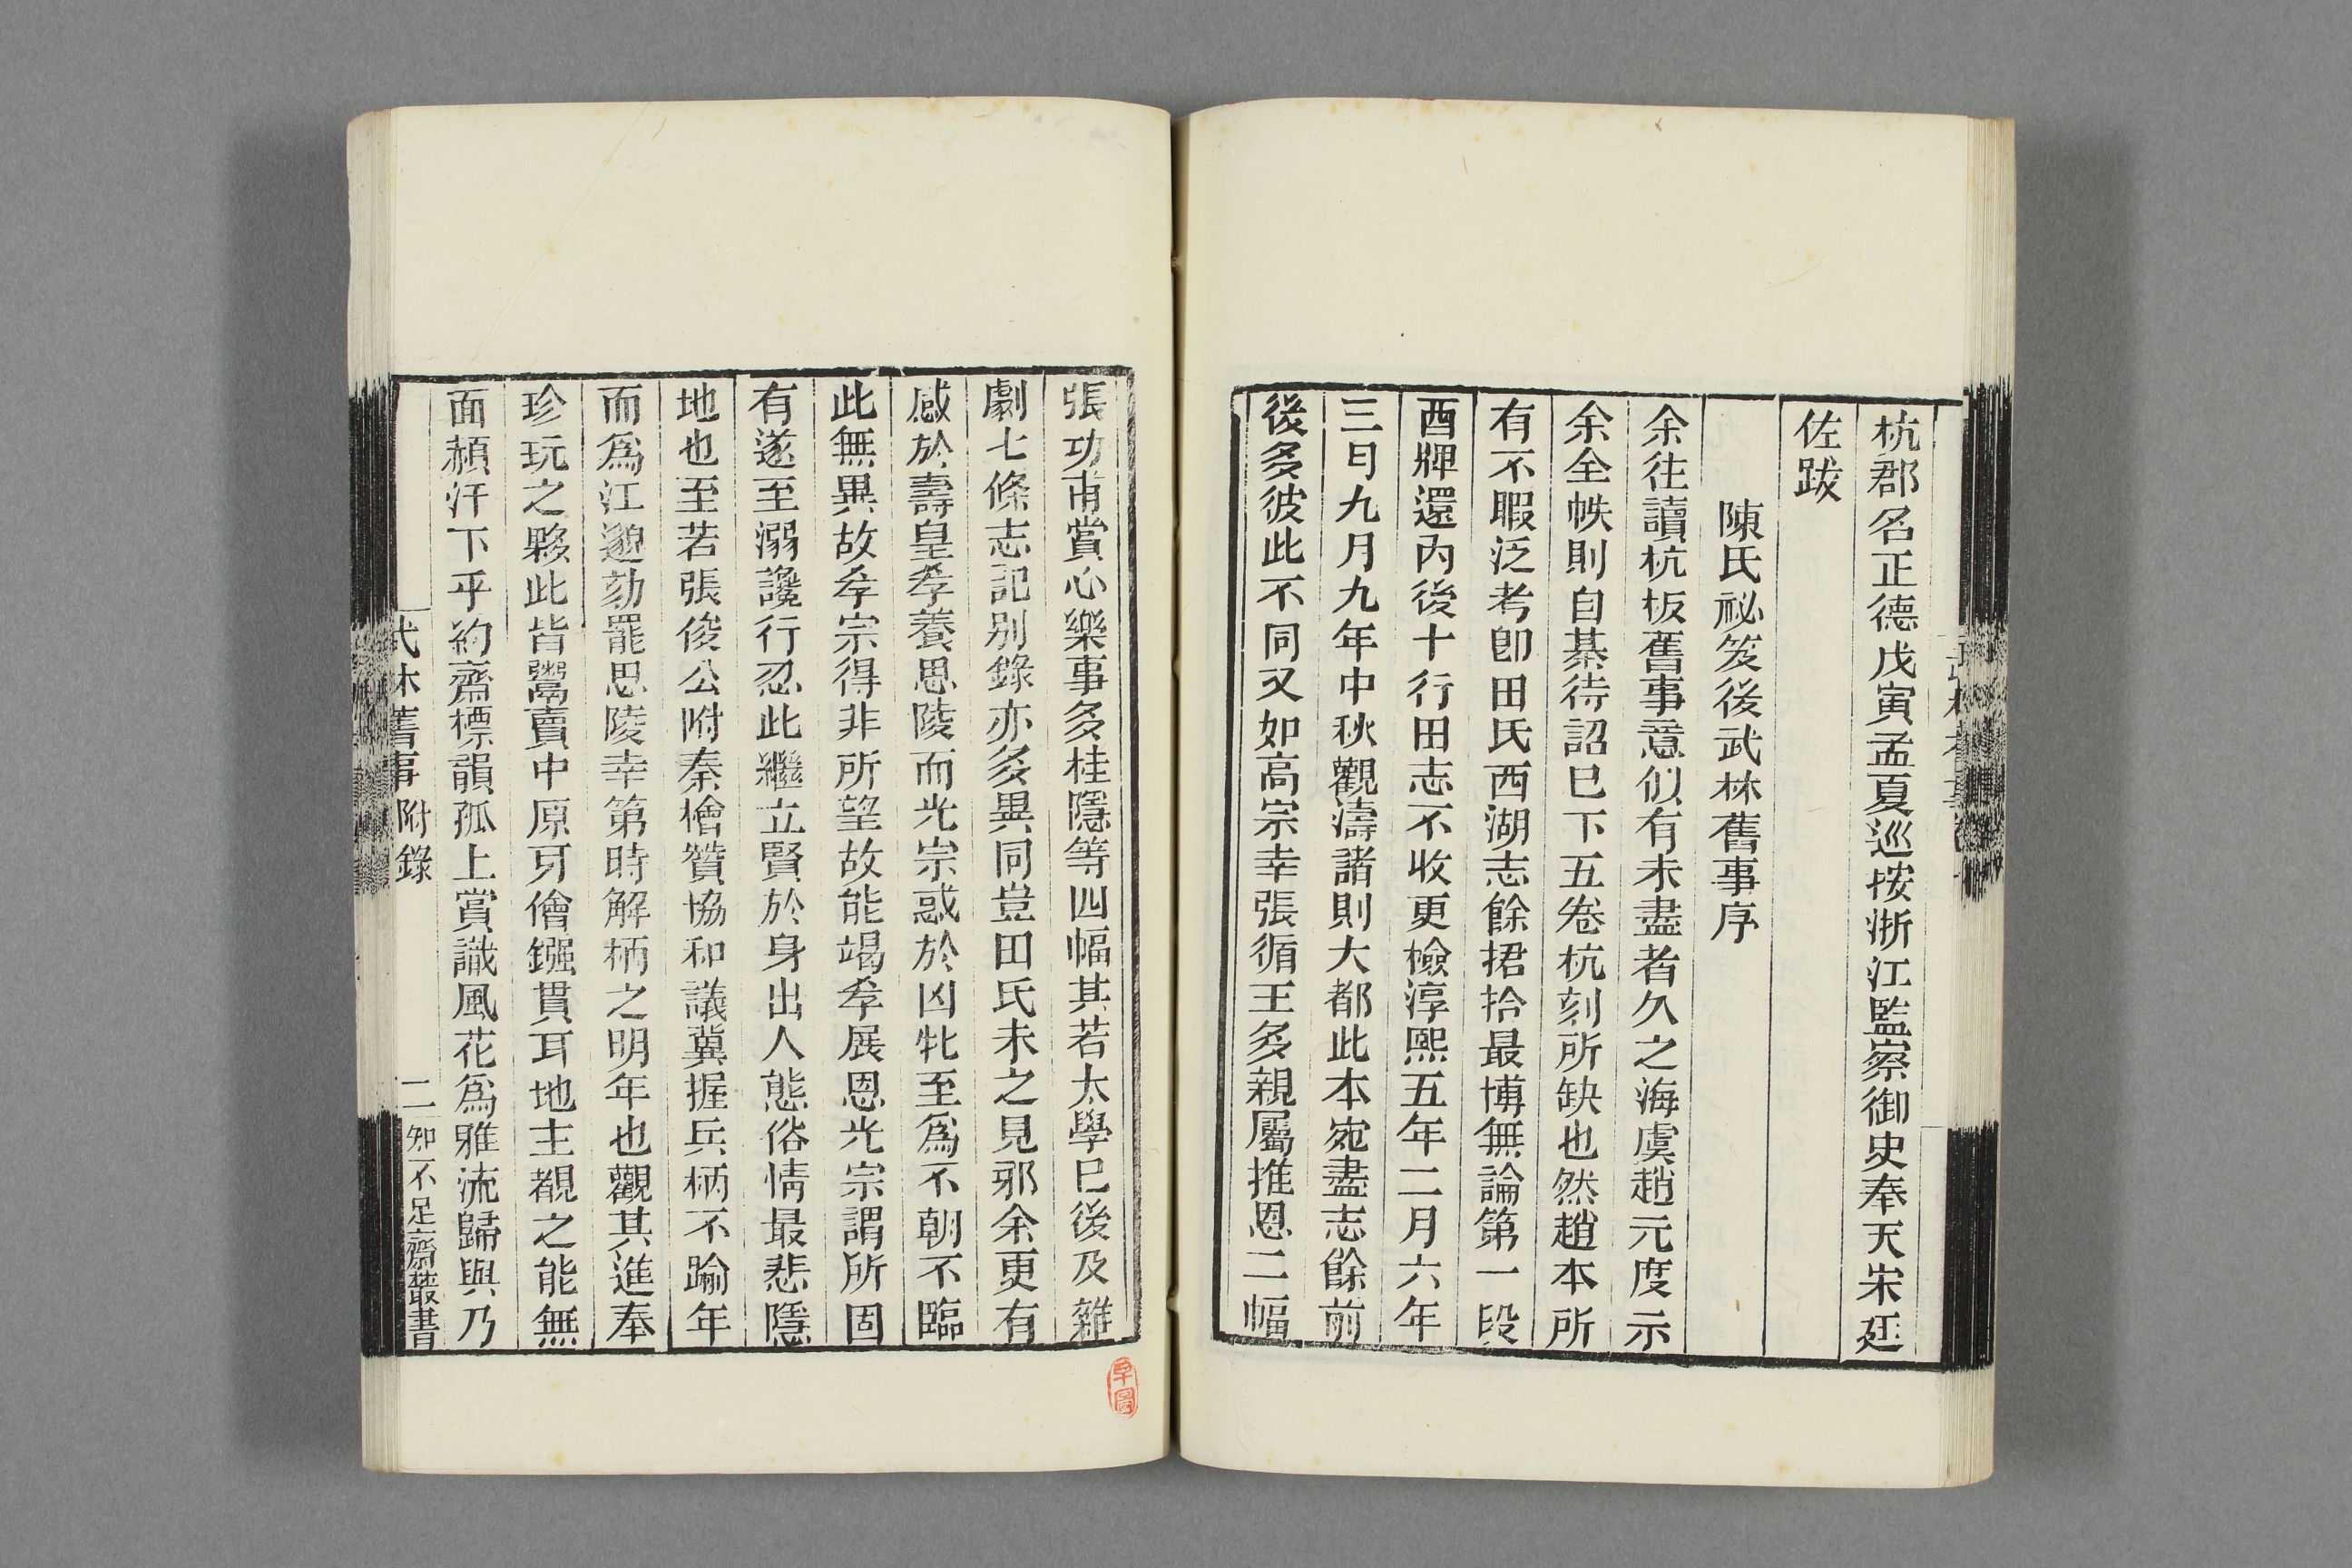 杭郡名正德戊寅孟夏巡按浙江監察御史奉天宋廷
佐跋
陳氏祕笈後武林舊事序
余往讀杭板舊事意似有未盡者久之海虞趙元度示
余全帙則自棊待詔已下五卷杭刻所缺也然趙本所
有不暇泛考卽田氏西湖志餘捃拾最博無論第一段
酉牌還內後十行田志不收更檢淳熙五年二月六年
三月九月九年中秋觀濤諸則大都此本宛盡志餘前
後多彼此不同又如高宗幸張循王多親屬推恩二幅
張功甫賞心樂事多桂隱等四幅其若太學巳後及雜
劇七條志記别錄亦多異同豈田氏未之見邪余更有
感於壽皇孝養思陵而光宗惑於凶牝至爲不朝不臨
此無異故孝宗得非所望故能竭孝展恩光宗謂所固
有遂至溺讒行忍此繼立賢於身出人態俗情最悲隱
地也至若張俊公附秦檜贊協和議冀握兵柄不踰年
而爲江邈劾罷思陵幸第時解柄之明年也觀其進奉
珍玩之夥此皆鬻賣中原牙儈鏹貫耳地主覩之能無
面頳汗下乎約齋標韻孤上賞識風花爲雅流歸與乃
武林舊事附錄
二
知不足齋叢書